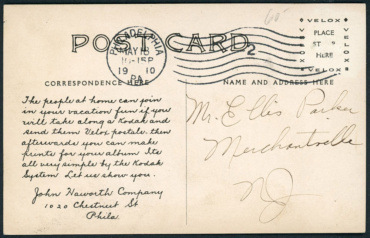 60
POST CARD
PHILADELPHIA
MAY 18
19 10
PA.
2
VELOX
PLACE
ST HERE
VELOX
CORRESPONDENCE HERE
NAME AND ADDRESS HERE
The people at home can join
in your vacation fun if you
will take along a Kodak and
send them Velox postals. then
afterwards you can make
prints for your album Its
all very simple by the Kodak
System Let us show you.
John Haworth Company
1020 Chestnut St
Phila.
Mr. Ellis Parker
Merchantville
NJ